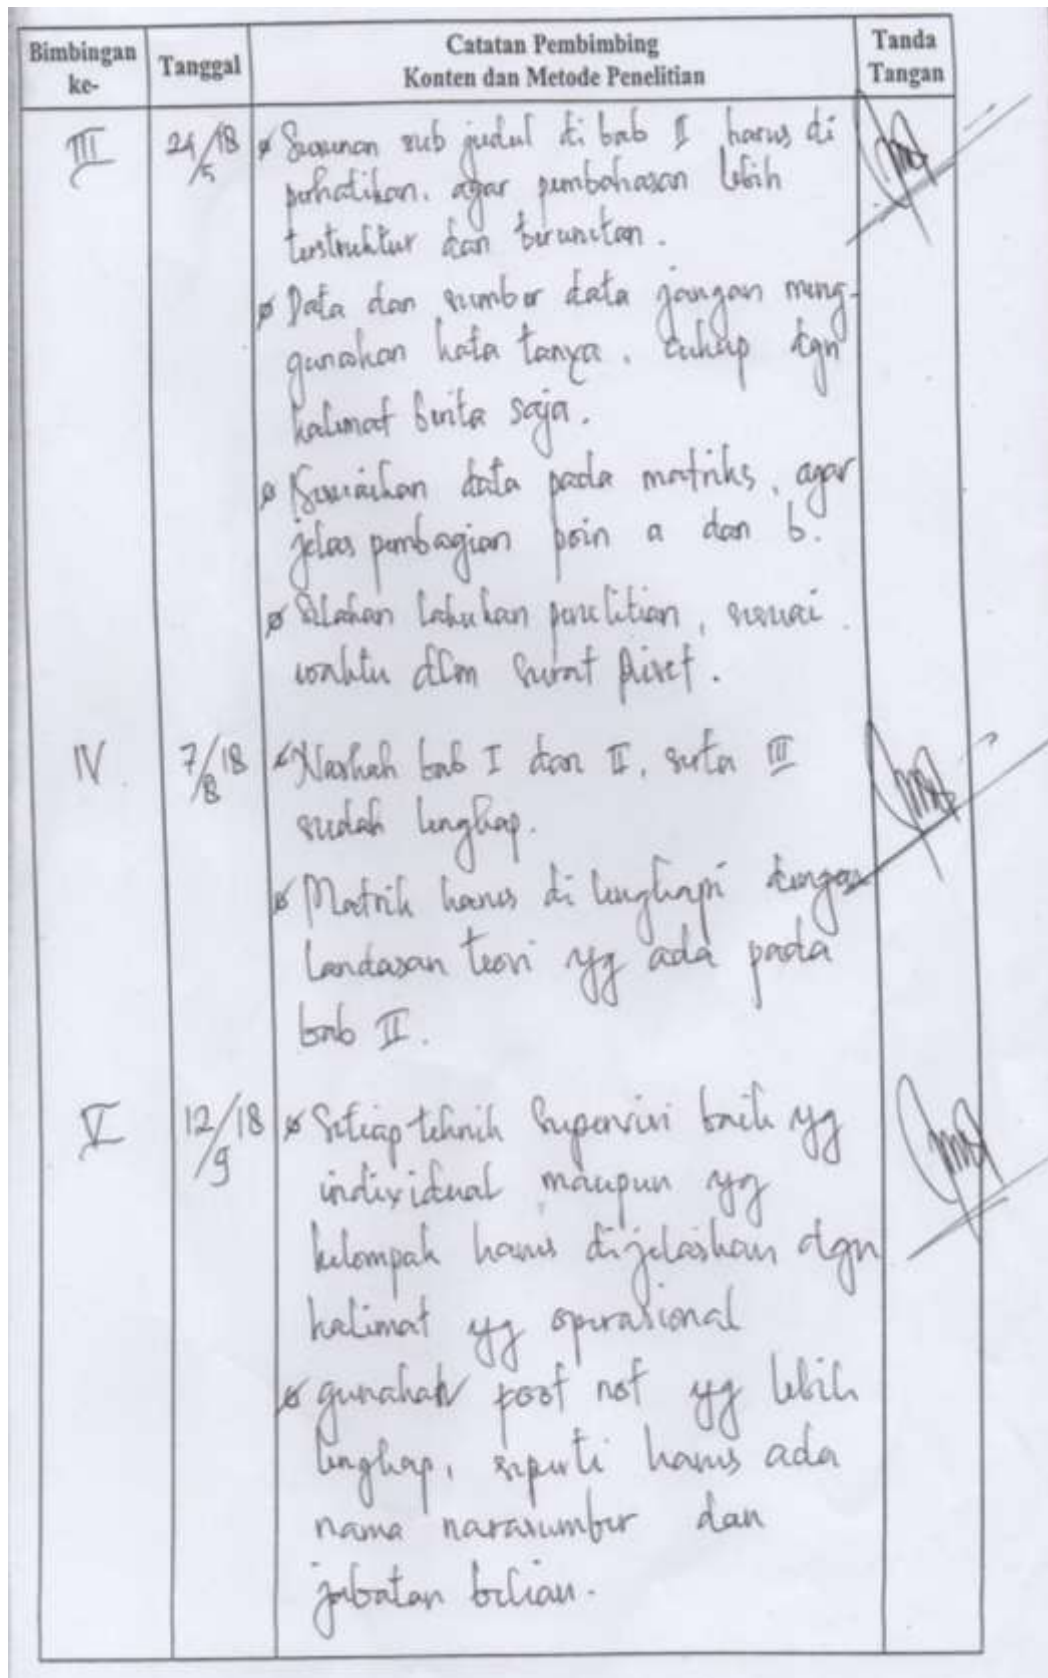 Bimbingan ke-
Tanggal
Catatan Pembimbing
Konten dan Metode Penelitian
Tanda Tangan
III
24/5 18
Susunan sub judul di bab II harus di
perhatikan. agar pembahasan lebih
terstruktur dan berurutan.
Data dan sumber data jangan meng-
gunakan kata tanya. cukup dgn
kalimat berita saja.
Sesuaikan data pada matriks, agar
jelas pembagian poin a dan b.
Silahan lakukan penelitian, sesuai
waktu dlm surat Riset.
IV
7/8 18
Naskah bab I dan II, serta III
sudah lengkap.
Matrik harus di lengkapi dengan
landasan teori yg ada pada
bab II.
V
12/9 18
Setiap tehnik Supervisi baik yg
individual maupun yg
kelompak harus dijelaskan dgn
kalimat yg operasional
gunakan foot not yg lebih
lengkap, seperti harus ada
nama narasumber dan
jabatan beliau.